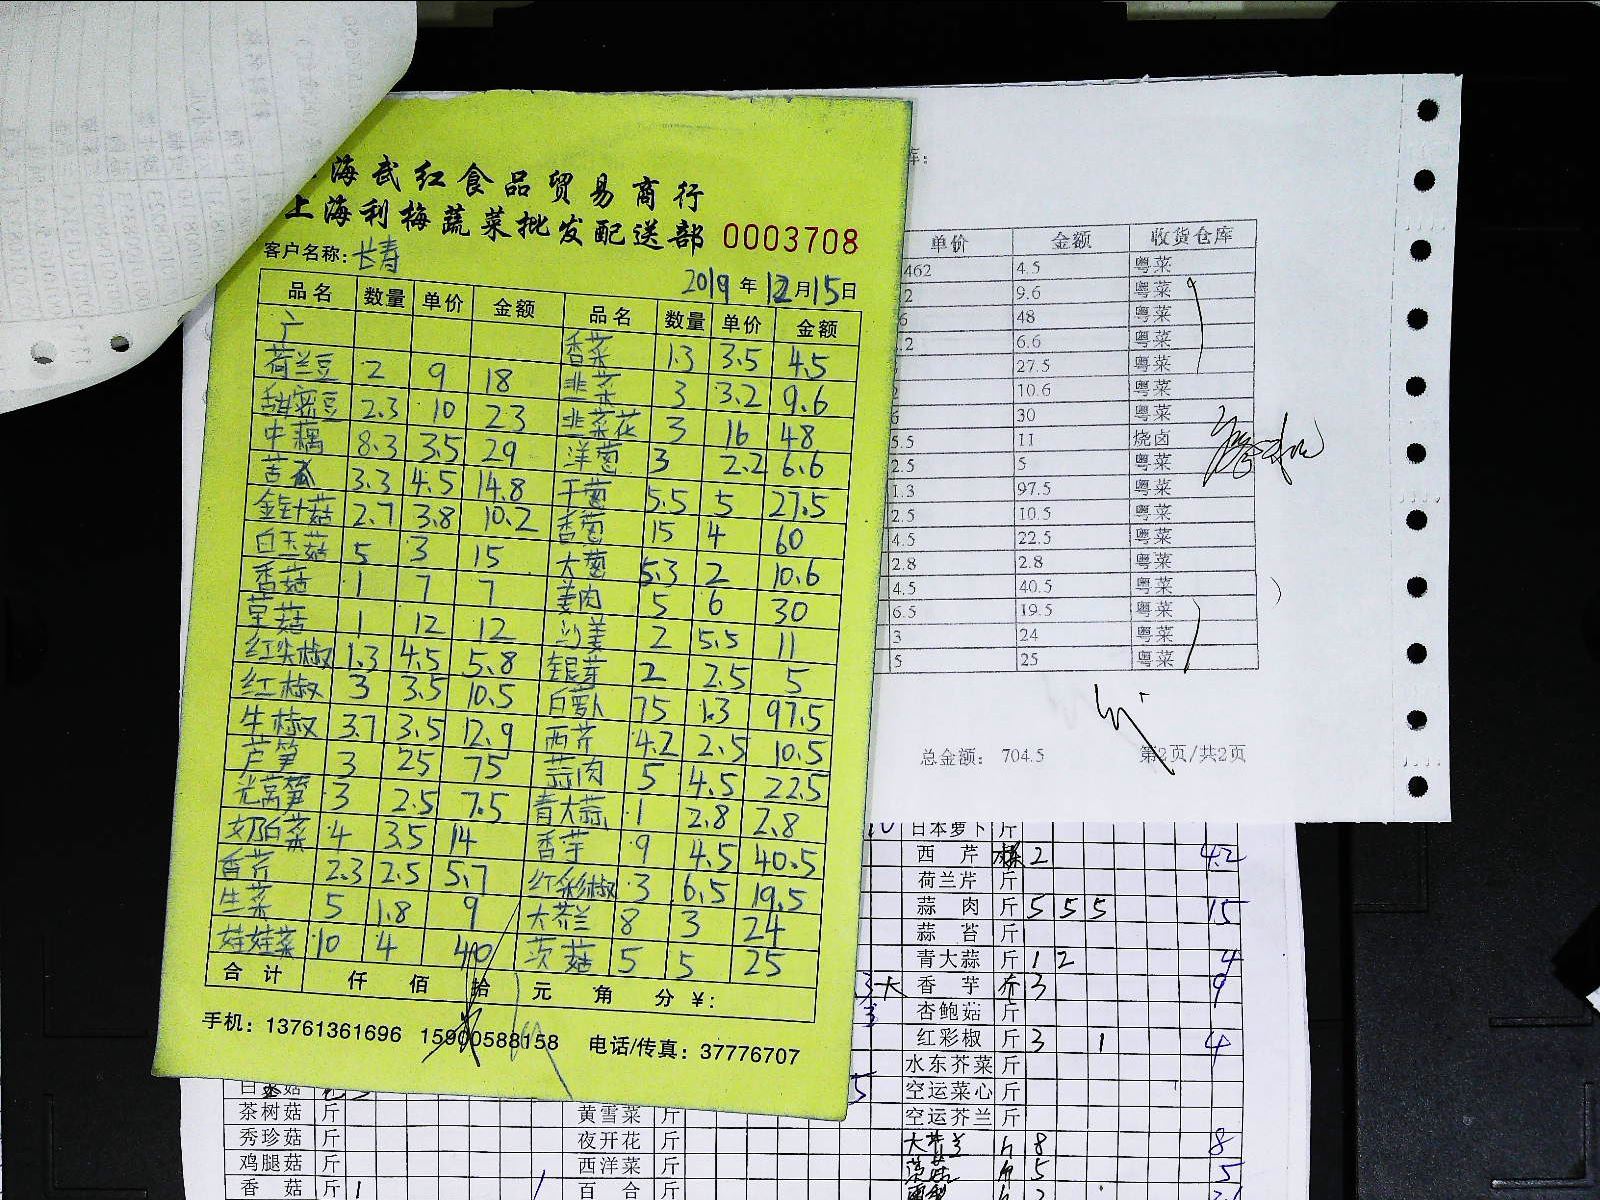 海武红食品贸易商行
上海利梅蔬菜批发配送部 0003708
客户名称：长寿
2019年12月15日
品名 数量 单价 金额 品名 数量 单价 金额
香菜 1.3 3.5 4.5
荷兰豆 2 9 18 韭菜 3 3.2 9.6
甜蜜豆 2.3 10 23 韭菜花 3 16 48
中藕 8.3 3.5 29 洋葱 3 2.2 6.6
苦瓜 3.3 4.5 14.8 干葱 5.5 5 27.5
金针菇 2.7 3.8 10.2 香葱 15 4 60
白玉菇 5 3 15 大葱 5.3 2 10.6
香菇 1 7 7 姜肉 5 6 30
草菇 1 12 12 沙姜 2 5.5 11
红尖椒 1.3 4.5 5.8 银芽 2 2.5 5
红椒 3 3.5 10.5 白萝卜 75 1.3 97.5
牛椒 3.7 3.5 12.9 西芹 4.2 2.5 10.5
芦笋 3 25 75 蒜肉 5 4.5 22.5
光莴笋 3 2.5 7.5 青大蒜 1 2.8 2.8
奶白菜 4 3.5 14 香芋 9 4.5 40.5
香芹 2.3 2.5 5.7 红彩椒 3 6.5 19.5
生菜 5 1.8 9 大芥兰 8 3 24
娃娃菜 10 4 40 茨菇 5 5 25
合计 仟 佰 拾 元 角 分 ¥：
手机：13761361696 15900588158 电话/传真：37776707
库：
单价 金额 收货仓库
462 4.5 粤菜
2 9.6 粤菜
6 48 粤菜
.2 6.6 粤菜
27.5 粤菜
2 10.6 粤菜
6 30 粤菜
5.5 11 烧卤
2.5 5 粤菜
1.3 97.5 粤菜
2.5 10.5 粤菜
4.5 22.5 粤菜
2.8 2.8 粤菜
4.5 40.5 粤菜
6.5 19.5 粤菜
3 24 粤菜
5 25 粤菜
总金额： 704.5 第2页/共2页
日本萝卜 斤
西芹 2 4.2
荷兰芹 斤
蒜肉 斤 5 5 5 15
蒜苔 斤
青大蒜 斤 1 2 4
大 香芋 斤 3 9
杏鲍菇 斤
红彩椒 斤 3 1 4
水东芥菜 斤
空运菜心 斤
空运芥兰 斤
大芥兰 8 8
茨菇 5 5
白玉菇
茶树菇 斤 黄雪菜 斤
秀珍菇 斤 夜开花 斤
鸡腿菇 斤 西洋菜 斤
香菇 斤 1 百合 斤